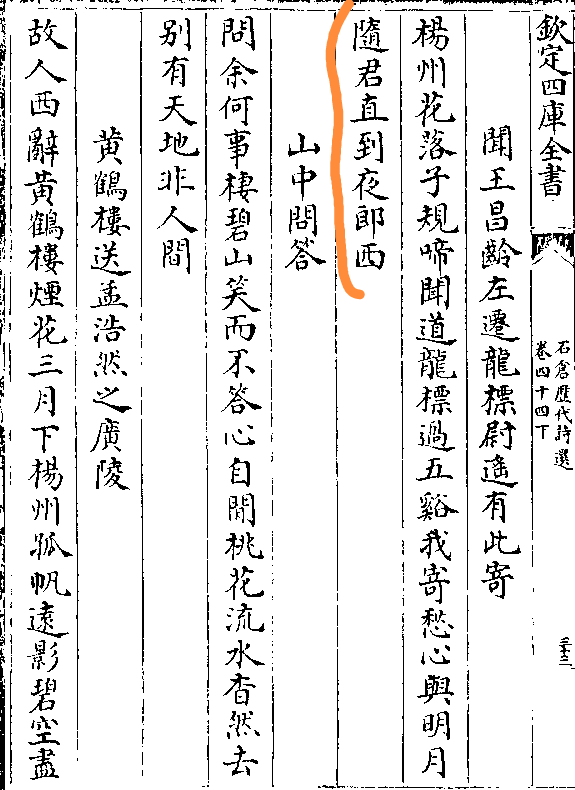 欽定四庫全書
石倉歴代詩選
卷四十四下
三十三
聞王昌齡左遷龍標尉遥有此寄
楊州花落子規啼聞道龍標過五谿我寄愁心與明月
隨君直到夜郎西
山中問答
問余何事棲碧山笑而不答心自閒桃花流水杳然去
别有天地非人間
黄鶴樓送孟浩然之廣陵
故人西辭黄鶴樓煙花三月下楊州孤帆逺影碧空盡